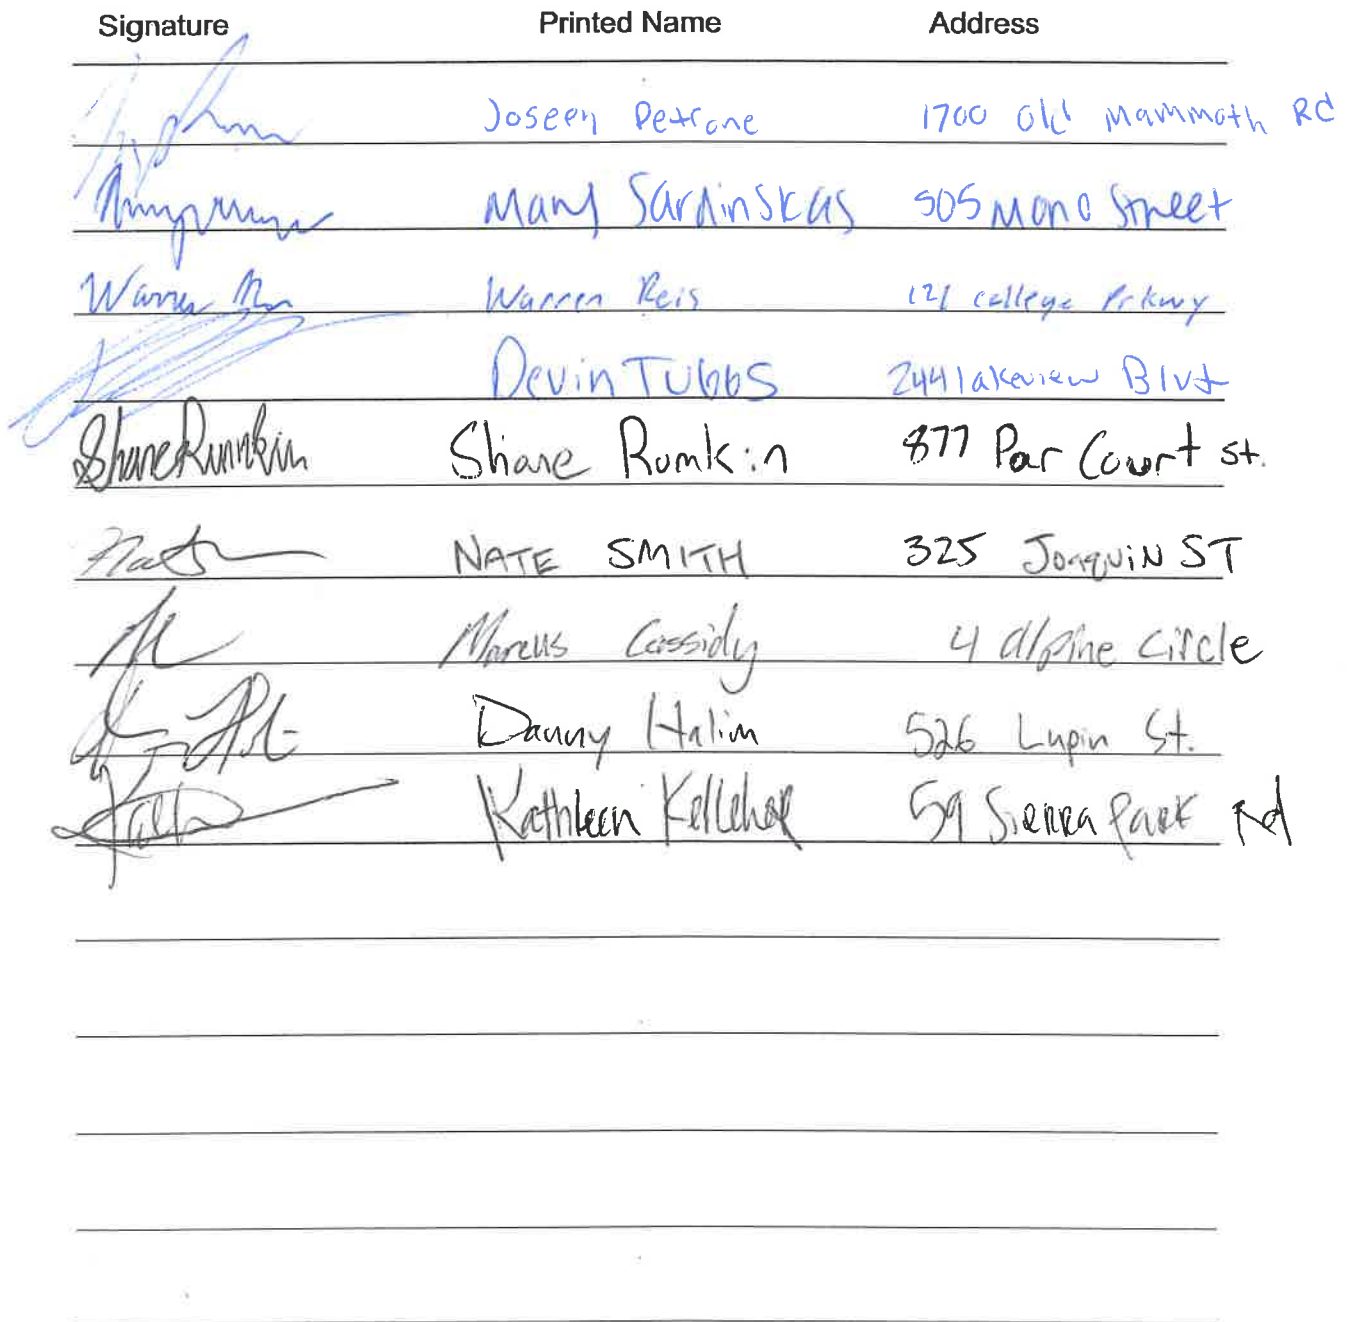 Signature Printed Name Address
Joseph Petrone 1700 Old Mammoth Rd
Mary Sardinskas 505 Mono Street
Warren Reis 121 college Prkwy
Devin Tubbs 244 lakeview Blvd
Shane Rumkin Shane Romkin 877 Par Court st.
Nate SMITH 325 Joaquin ST
Marcus Cassidy 4 alpine circle
Danny Halim 526 Lupin St.
Kathleen Kelleher 59 Sierra Park Rd